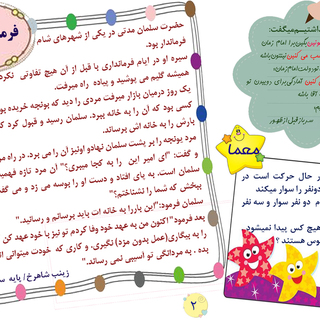 فرما
حضرت سلمان مدتی در یکی از شهرهای شام
فرماندار بود.
سیره او در ایام فرمانداری با قبل از آن هیچ تفاوتی نکرد
همیشه گلیم می پوشید و پیاده راه میرفت.
یک روز درمیان بازار میرفت مردی را دید که یونجه خریده بود
کسی بود که آن را به خانه ببرد. سلمان رسید و قبول کرد که
بارش را به خانه اش برساند.
مرد یونجه را بر پشت سلمان نهاد و اونیز آن را می برد. در راه مر
و گفت: "ای امیر این را به کجا میبری؟" آن مرد تازه فهمید
سلمان است. به پای افتاد و دست او را بوسه می زد و می گفت
ببخش که شما را نشناختم؟"
سلمان فرمود: "این باررا به خانه ات باید برسانم و رسانید."
بعد فرمود "اکنون من به عهد خود وفا کردم تو نیز با خود عهد کن
را به بیگاری(عمل بدون مزد) نگیری، و کاری که خودت میتوانی ان
بده . به مردانگی تو آسیبی نمی رساند."
زینب شاهرخ/ پایه س
۲
داشتیم میگفت:
امام زمان
معما
ر حال حرکت است در
دونفر را سوار میکند
م دو نفر سوار و سه نفر
هیچ کس پیدا نمیشود
وس هستند ؟